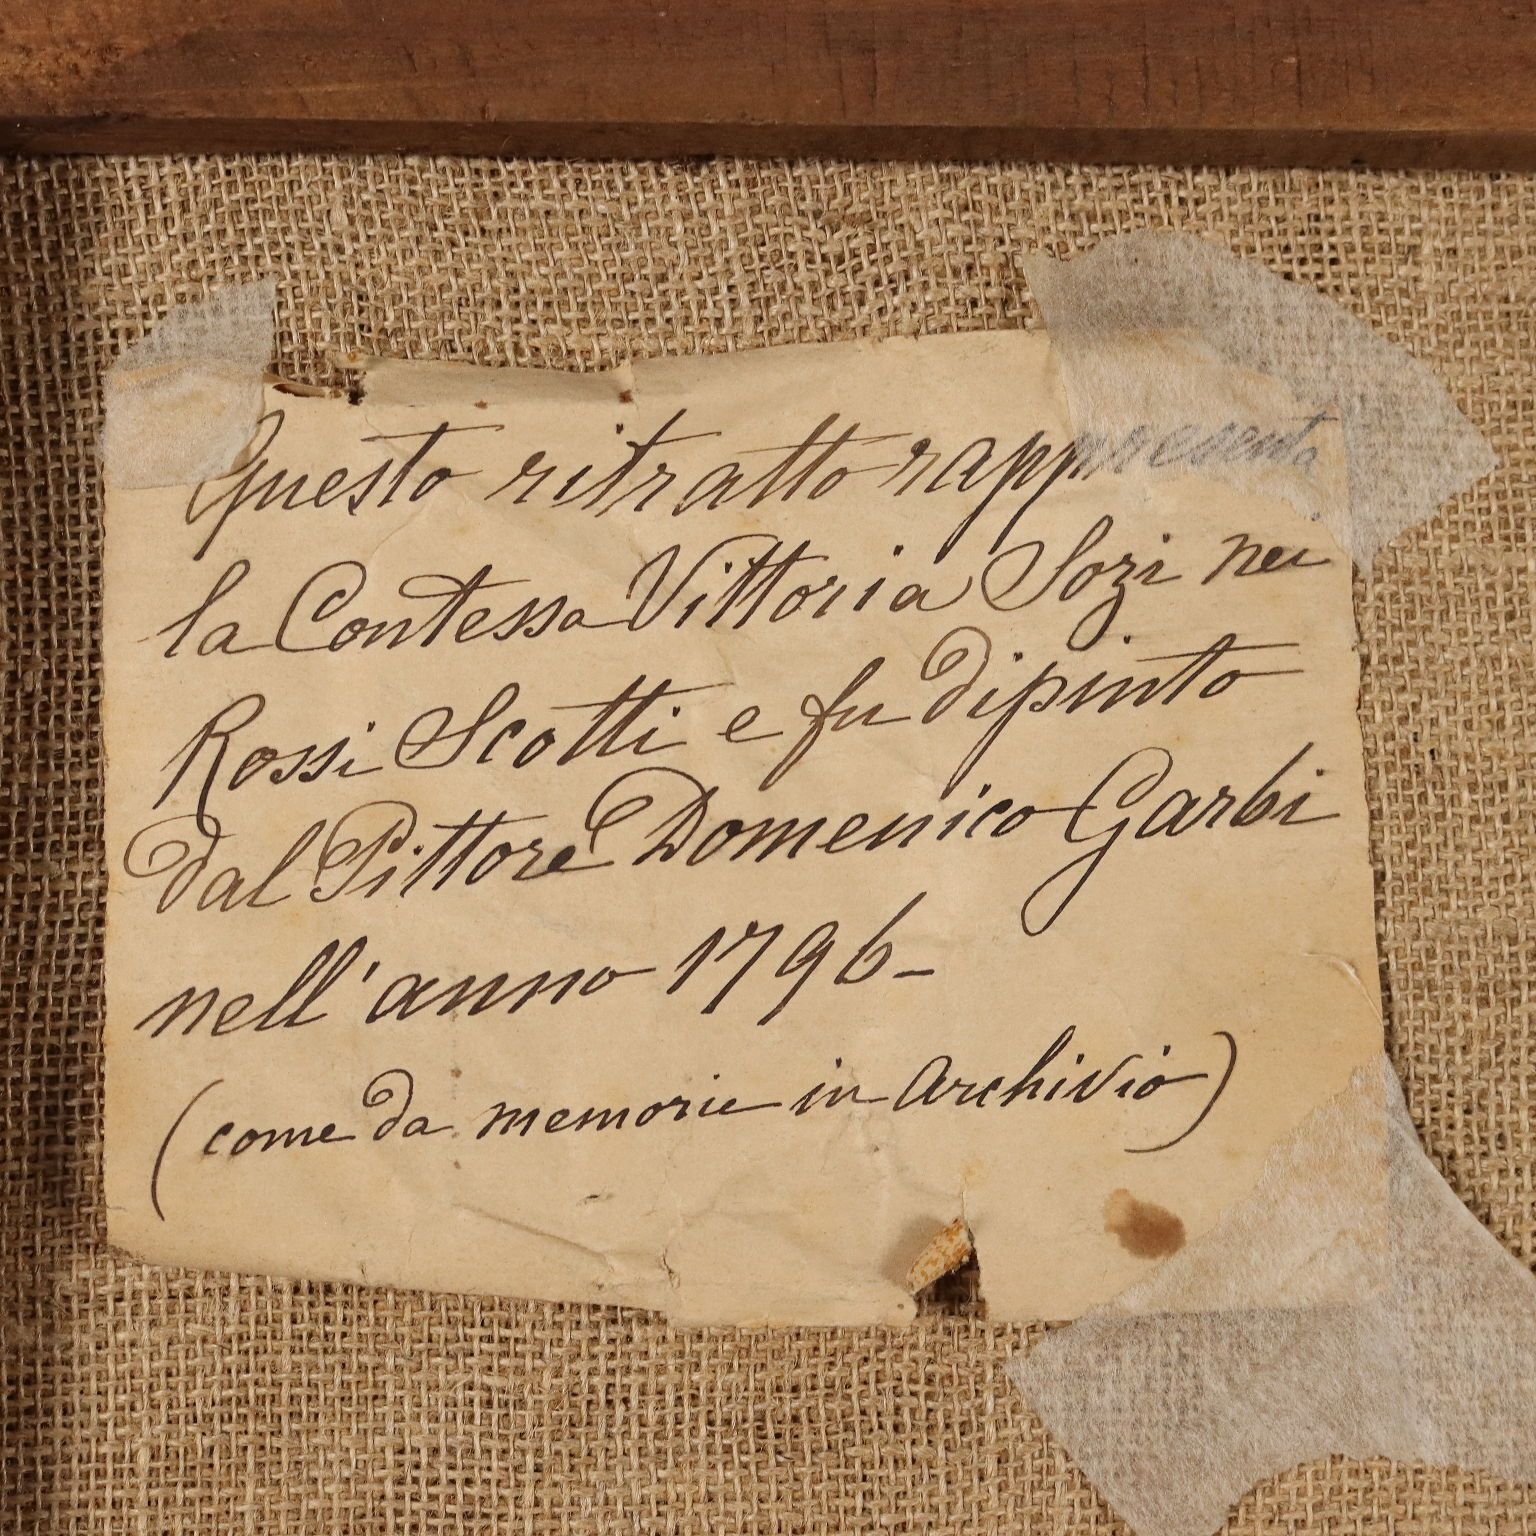 Questo ritratto rappresenta
la Contessa Vittoria Sozi nei
Rossi Scotti e fu dipinto
dal Pittore Domenico Garbi
nell'anno 1796-
(come da memorie in archivio)